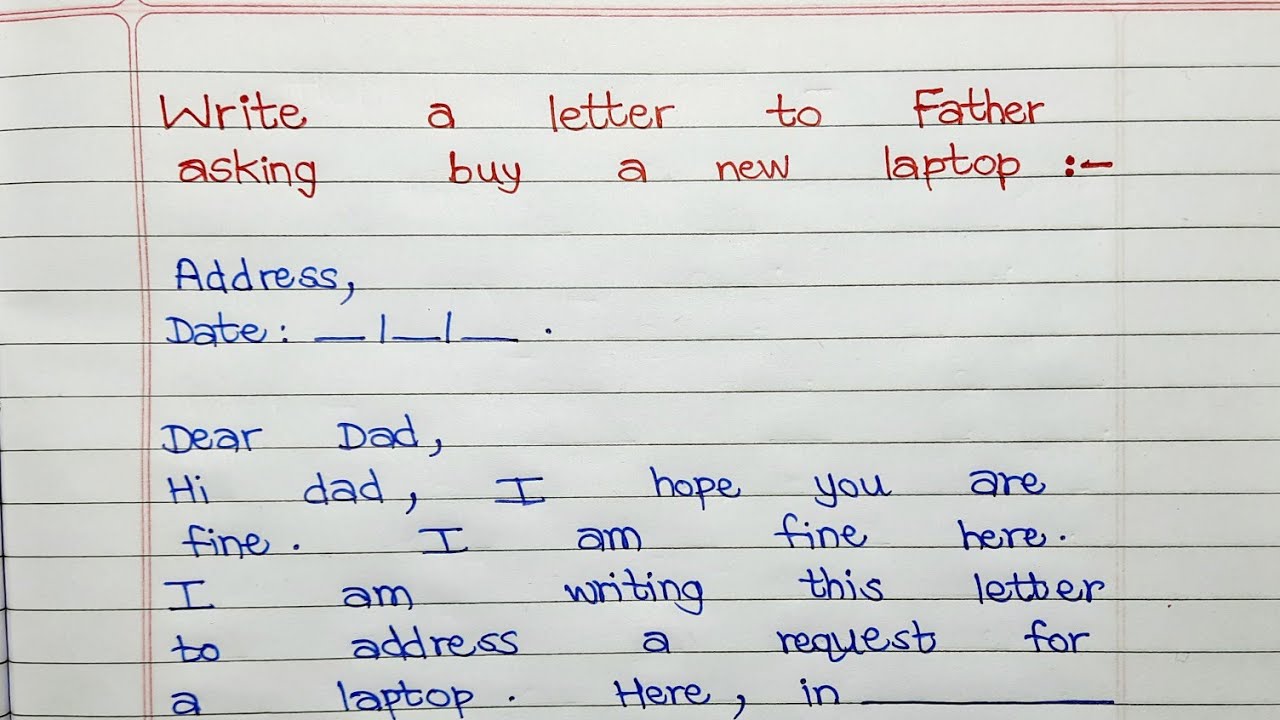 Write a letter to Father
asking buy a new laptop :-
Address,
Date: __/__/__ .
Dear Dad,
Hi dad, I hope you are
fine. I am fine here.
I am writing this letter
to address a request for
a laptop. Here, in ________